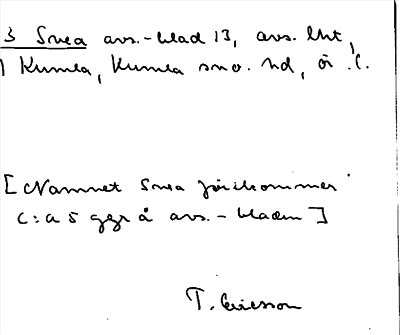 3 Snea avs.-blad 13, avs. lht,
Kumla, Kumla sno. hd, ör .C.
[Namnet Snea förekommer
c:a 5 ggr å avs.-bladen]
T. Ericsson